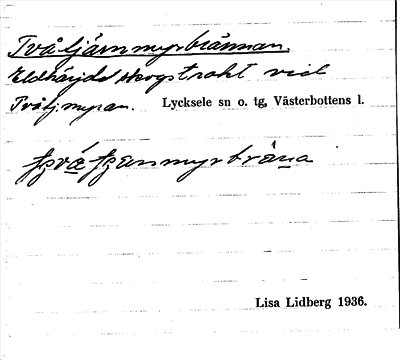 Tvåtjärnmyrbrännan.
Eldhärjad skogstrakt vid
Tvåtj.myran. Lycksele sn o. tg, Västerbottens l.
myrbräna
Lisa Lidberg 1936.